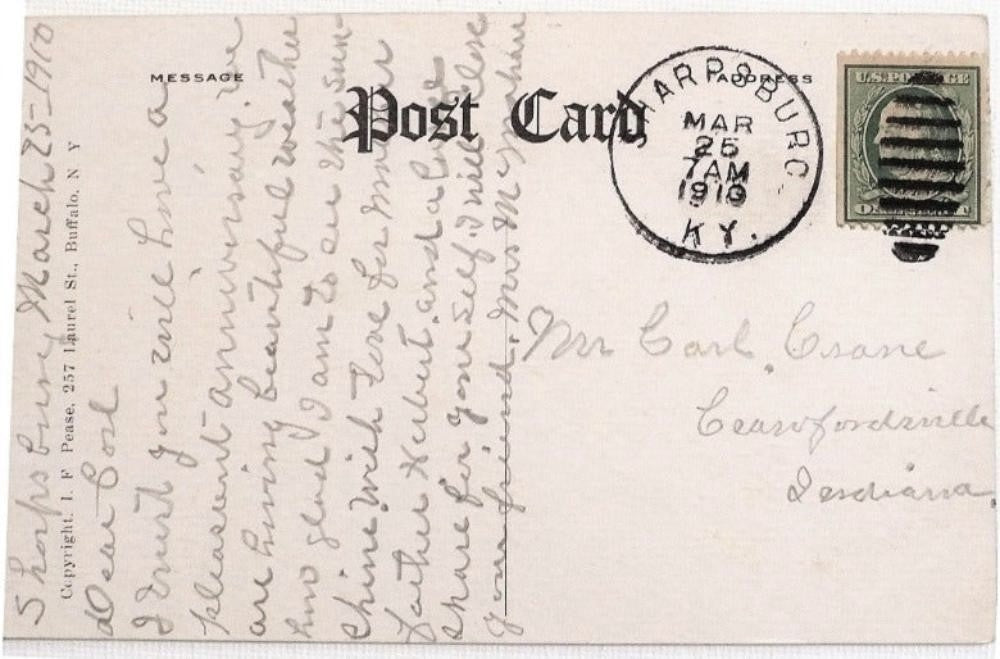 MESSAGE
ADDRESS
Post Card
SHARPSBURG
MAR
25
7 AM
1910
KY.
U.S. POSTAGE
Copyright. I. F Pease, 257 Laurel St., Buffalo, N Y
Sharpsburg, March 25-1910
Dear Carl
I trust you will have a
pleasant anniversary. We
are having beautiful weather
how glad I am to see the sun-
shine, with love for your
father Herbert, and a large
share for your self. I will close
your friend, Mrs
Mr Carl, Crane
Crawfordsville
Indiana.